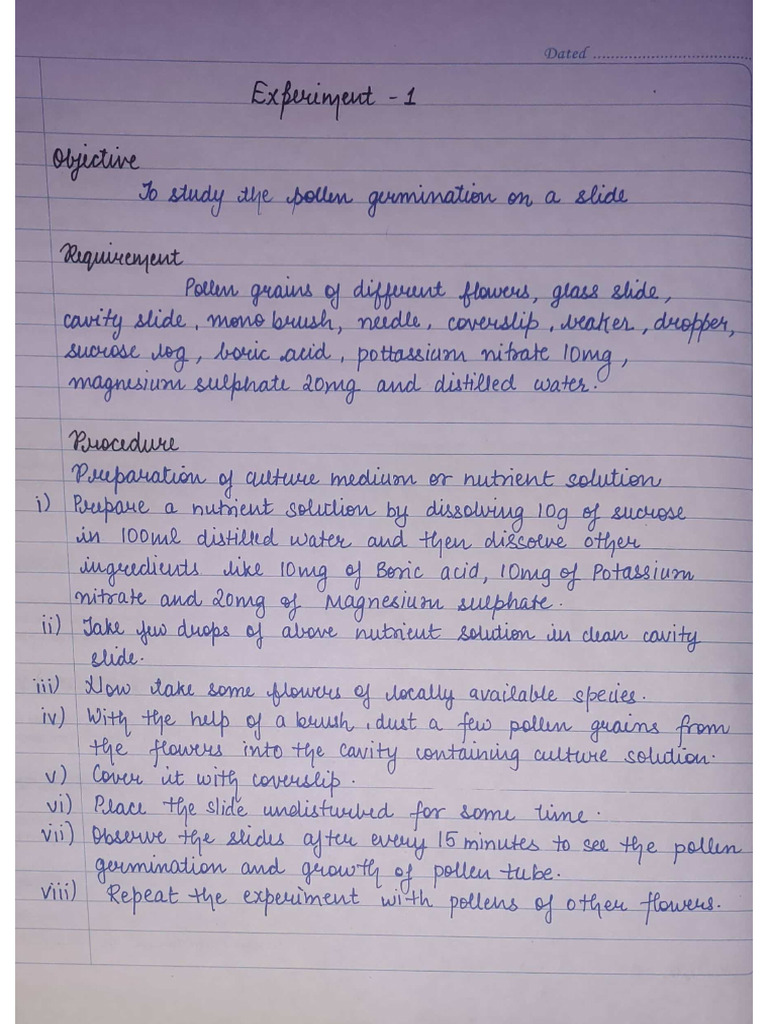 Dated ....................................
Experiment - 1
Objective
To study the pollen germination on a slide
Requirement
Pollen grains of different flowers, glass slide,
cavity slide, mono brush, needle, coverslip, beaker, dropper,
sucrose 10g, boric acid, pottassium nitrate 10mg,
magnesium sulphate 20mg and distilled water.
Procedure
Preparation of culture medium or nutrient solution
i) Prepare a nutrient solution by dissolving 10g of sucrose
in 100ml distilled water and then dissolve other
ingredients like 10mg of Boric acid, 10mg of Potassium
nitrate and 20mg of Magnesium sulphate.
ii) Take few drops of above nutrient solution in clean cavity
slide.
iii) Now take some flowers of locally available species.
iv) With the help of a brush, dust a few pollen grains from
the flowers into the cavity containing culture solution.
v) Cover it with coverslip.
vi) Place the slide undisturbed for some time.
vii) Observe the slides after every 15 minutes to see the pollen
germination and growth of pollen tube.
viii) Repeat the experiment with pollens of other flowers.